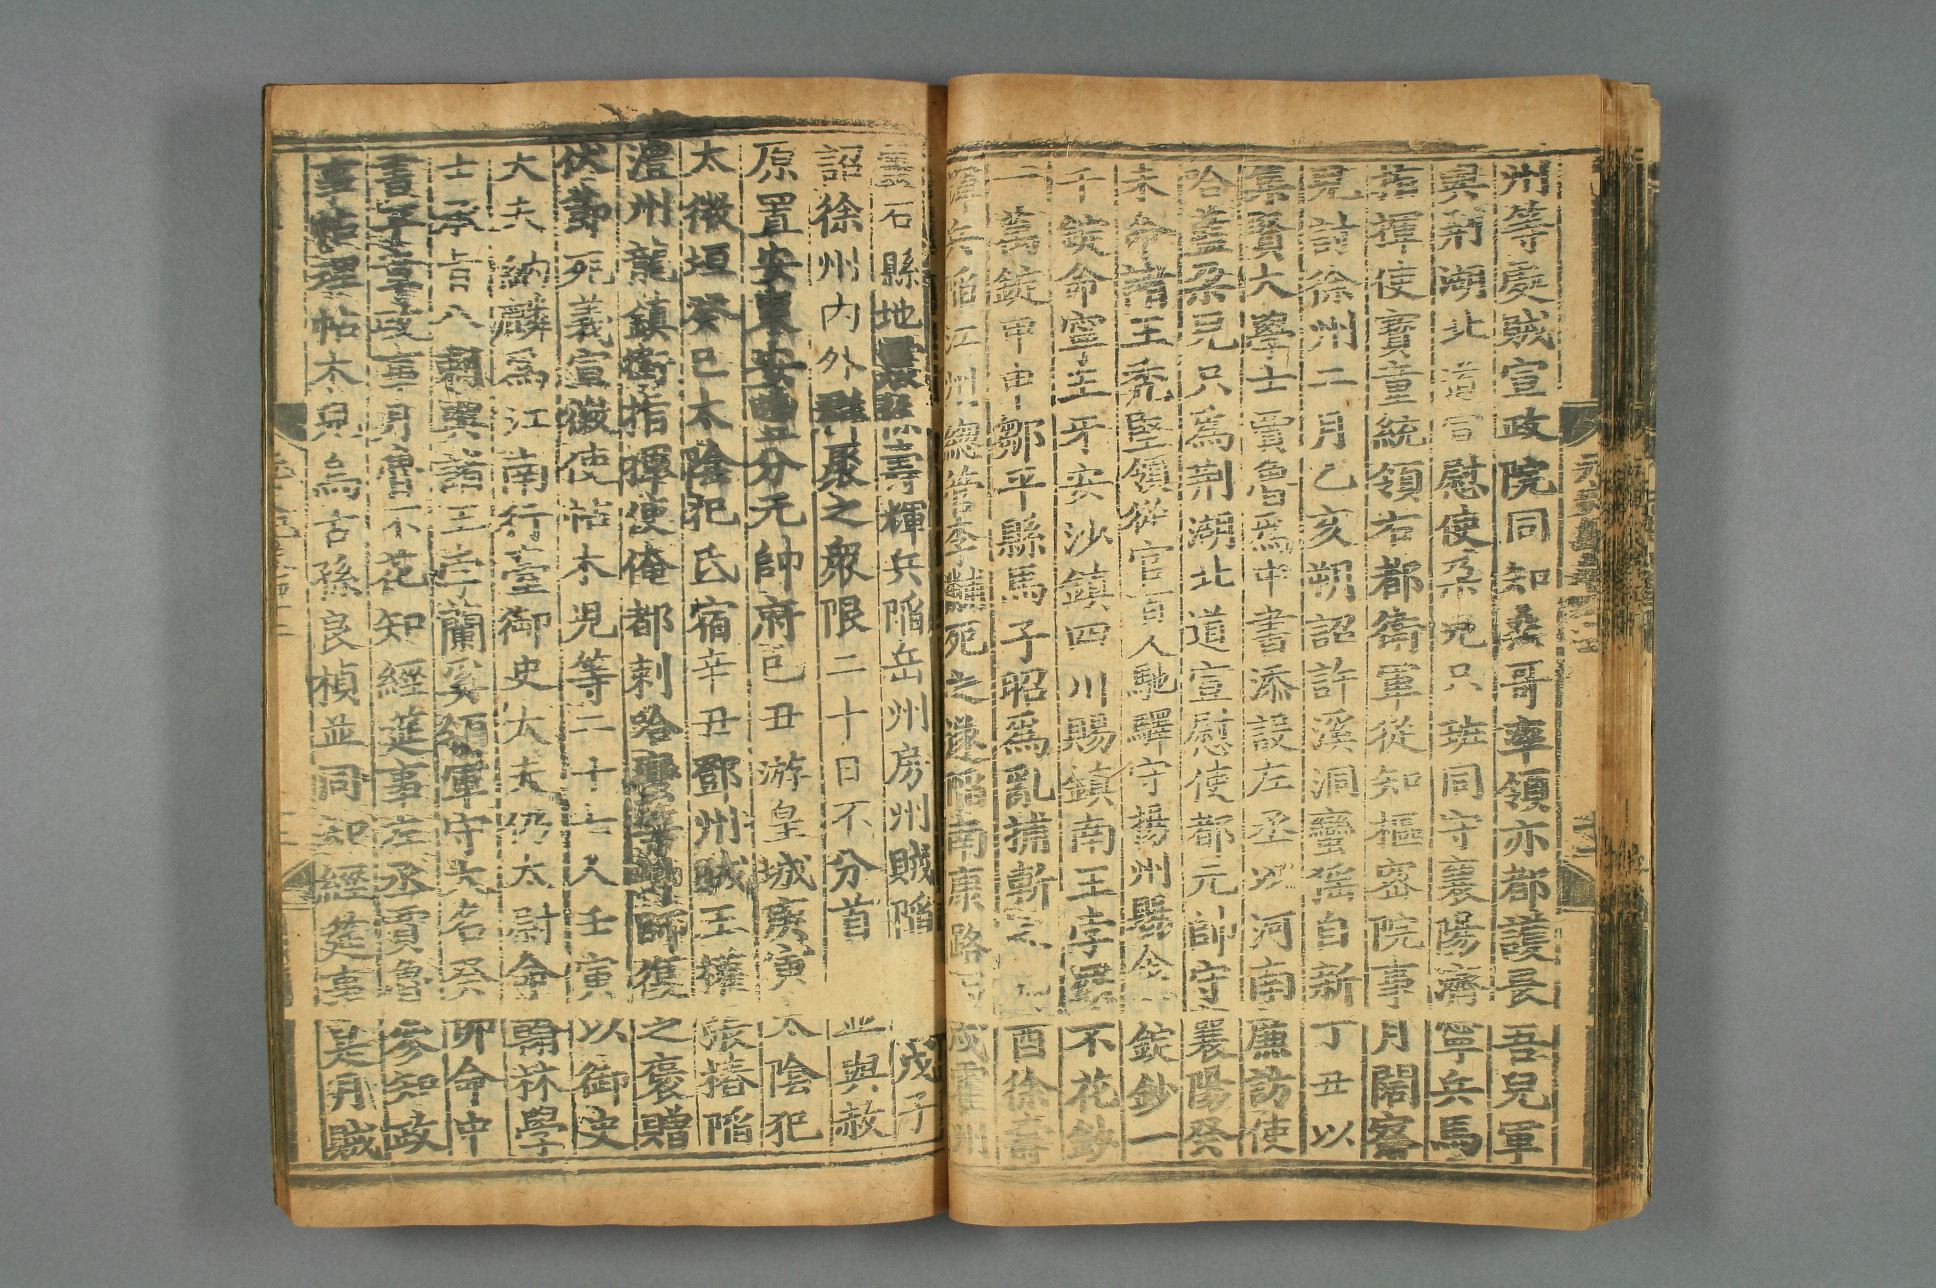 州等處賊宣政院同知桑哥率領亦都護畏吾兒軍
與荊湖北道宣慰使朶兒只班同守襄陽濟寧兵馬
指揮使寶童統領右都衛軍從知樞密院事月闊察
兒討徐州二月乙亥朔詔許溪洞蠻猺自新丁丑以
集賢大學士賈魯爲中書添設左丞以河南廉訪使
哈藍朶兒只爲荊湖北道宣慰使都元帥守襄陽癸
未命諸王禿堅領從官百人馳驛守揚州賜金一錠鈔一
千錠命寧王牙安沙鎮四川賜鎮南王孛羅不花鈔
一萬錠甲申鄒平縣馬子昭爲亂捕斬之乙酉徐壽
輝兵陷江州總管李黼死之遂陷南康路丙戌霍州
靈石縣地震徐壽輝兵陷岳州房州賊陷戊子
詔徐州內外群聚之衆限二十日不分首並與赦
原置安東安豐分元帥府己丑游皇城庚寅太陰犯
太微垣癸巳太陰犯氐宿辛丑鄧州賊王權張椿陷
澧州龍鎮衛指揮使俺都剌哈蠻等帥師復之褒贈
伏節死義宣徽使帖木兒等二十七人壬寅以御史
大夫納麟爲江南行臺御史大夫仍太尉命翰林學
士承旨八剌與諸王孛蘭奚領軍守大名癸卯命中
書平章政事月魯不花知經筵事左丞賈魯參知政
事帖理帖木兒烏古孫良楨並同知經筵事是月賊